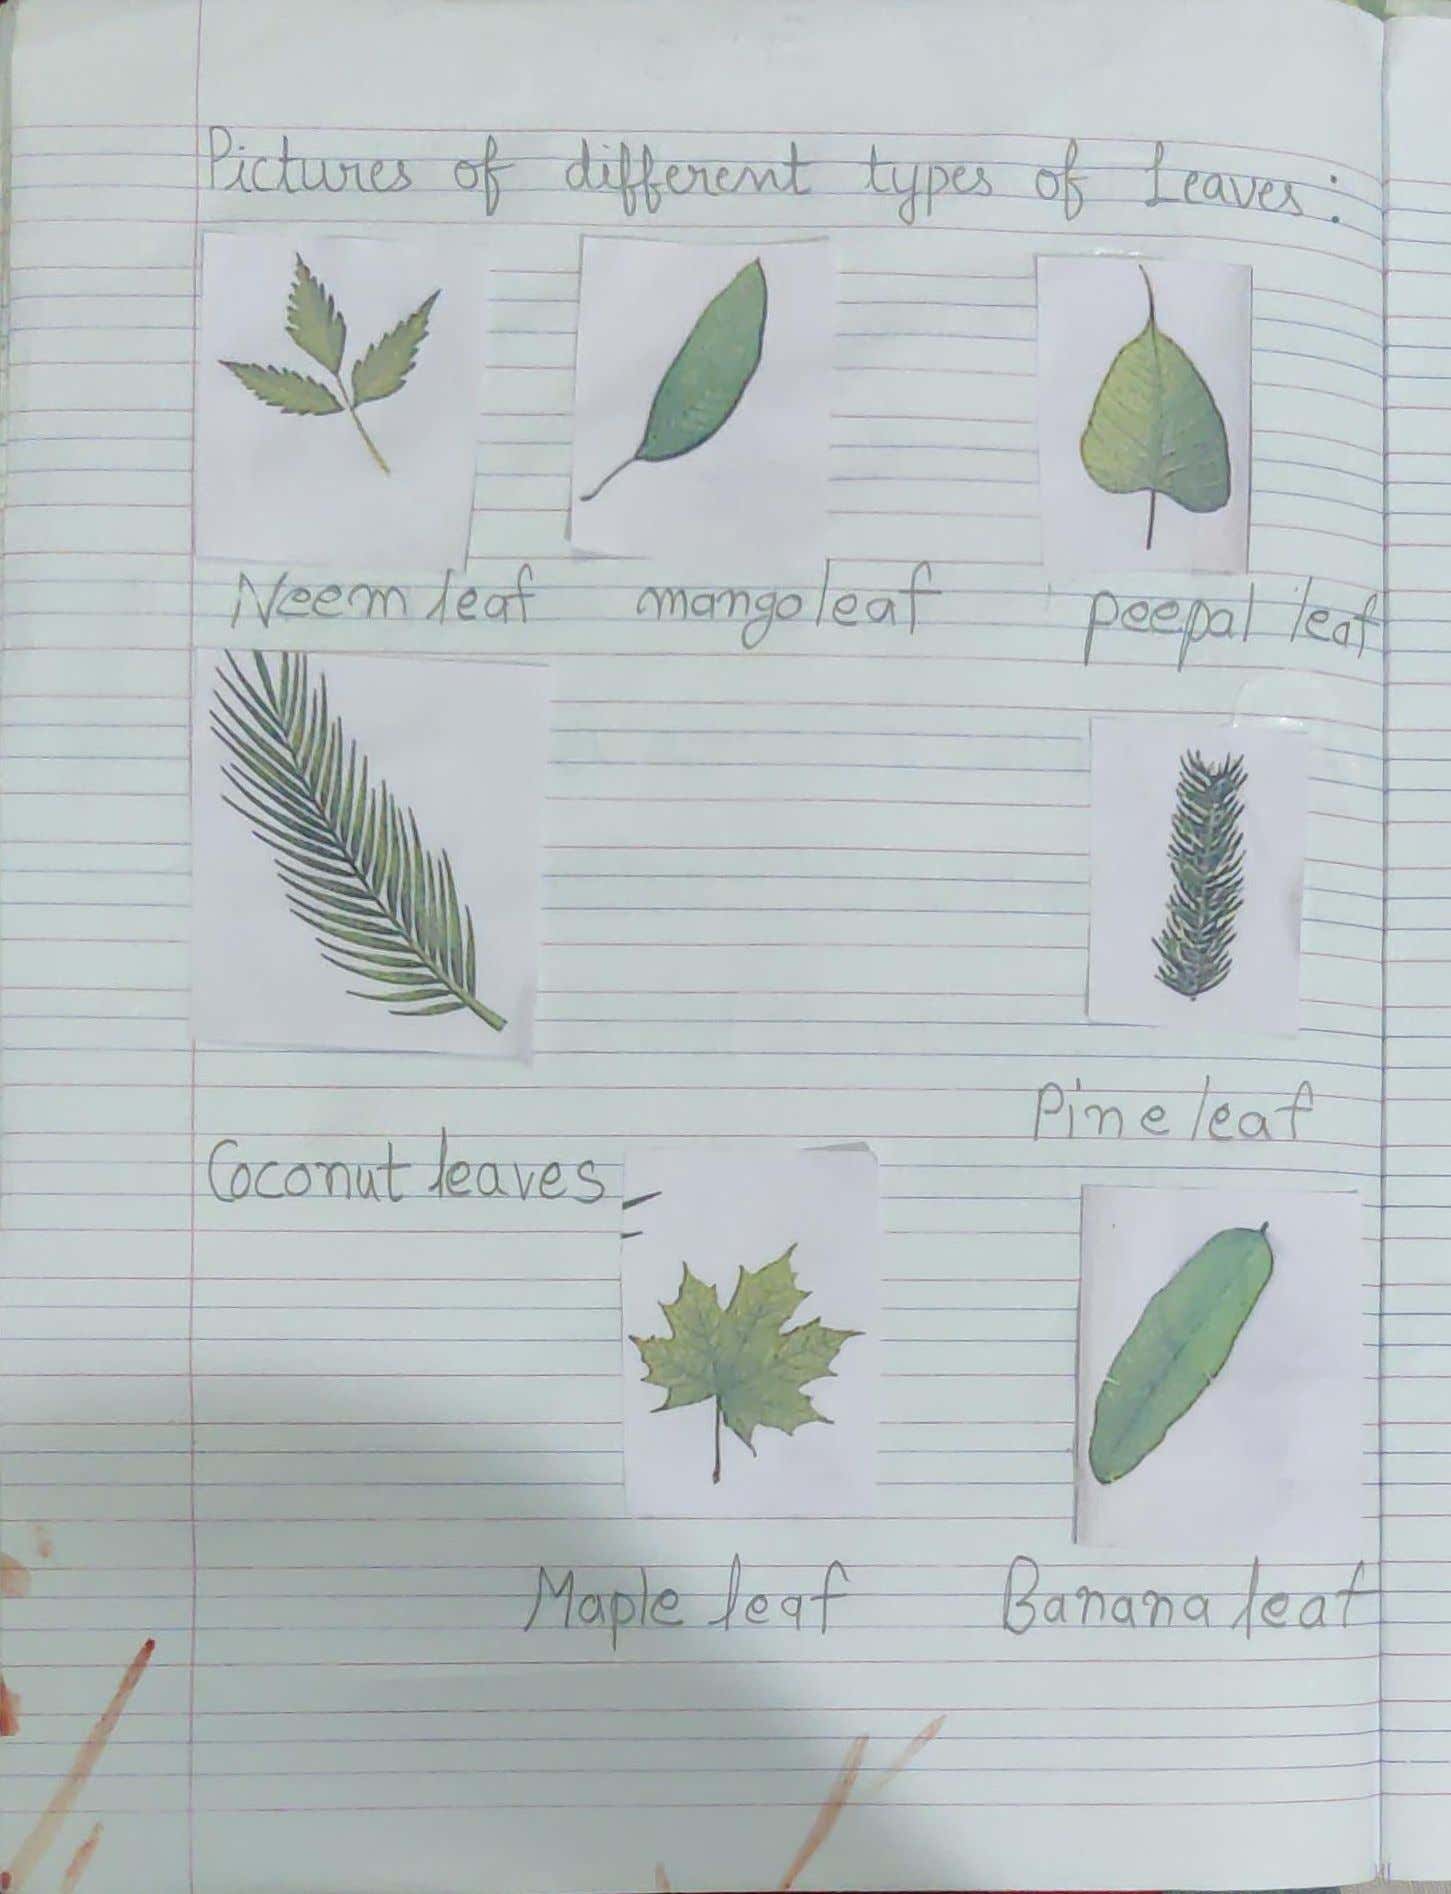 Pictures of different types of Leaves:
Neem leaf mango leaf peepal leaf
Pine leaf
Coconut leaves
Maple leaf Banana leaf